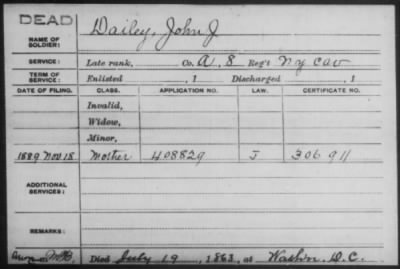 DEAD
NAME OF SOLDIER: Dailey, John J
SERVICE: Late rank, Co. A, 8 Reg't N.Y. Cav
TERM OF SERVICE: Enlisted , 1 Discharged , 1
DATE OF FILING. CLASS. APPLICATION NO. LAW. CERTIFICATE NO.
Invalid,
Widow,
Minor,
1889 Nov 18 Mother 408829 J 306911
ADDITIONAL SERVICES:
REMARKS:
Died July 19, 1863, at Washn. D.C.